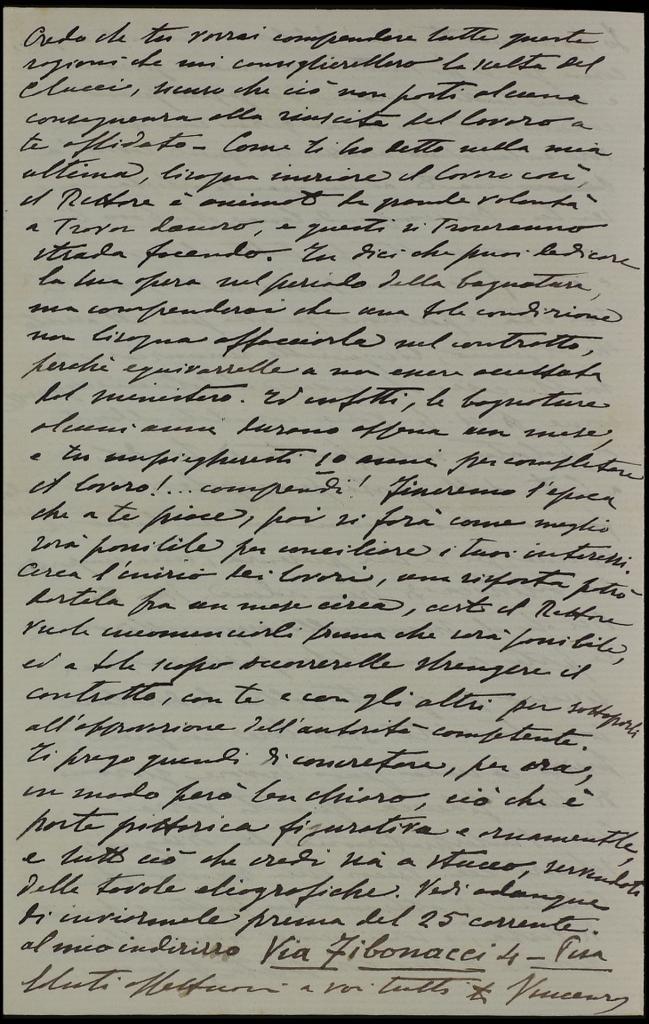 Credo che tu vorrai comprendere tutte queste
ragioni che mi consiglierebbero la scelta del
Clucci, sicuro che ciò non porti alcuna
conseguenza alla riuscita del lavoro a
te affidato – Come ti ho detto nella mia
ultima, bisogna iniziare il lavoro così,
il Rettore è animato da grande volontà
a trovar danaro, e questi si troveranno
strada facendo. Tu dici che puoi dedicare
la tua opera nel periodo della bagnatura,
ma comprenderai che una tale condizione
non bisogna affacciarla nel contratto,
perchè equivarrebbe a non essere accettata
dal ministero. Ed infatti, le bagnature
alcuni anni durano appena un mese,
e tu impiegheresti 10 anni per completare
il lavoro!... comprendi! Fineremo l'epoca
che a te piace, poi si farà come meglio
sarà possibile per conciliare i tuoi interessi.
Circa l'inizio dei lavori, una risposta potrò
dartela fra un mese circa, certo il Rettore
vuole incominciarli prima che sarà possibile,
ed a tale scopo occorrerebbe stringere il
contratto, con te e con gli altri per sottoporli
all'approvazione dell'autorità competente.
Ti prego quindi di concretare, per ora,
in modo però ben chiaro, ciò che è
parte pittorica figurativa e ornamentale,
e tutto ciò che credi sia a stucco, servendoti
delle tavole eliografiche. Vedi adunque
di inviarmele prima del 25 corrente.
al mio indirizzo Via Fibonacci 4 – Pisa
Saluti affettuosi a voi tutti Vincenzo